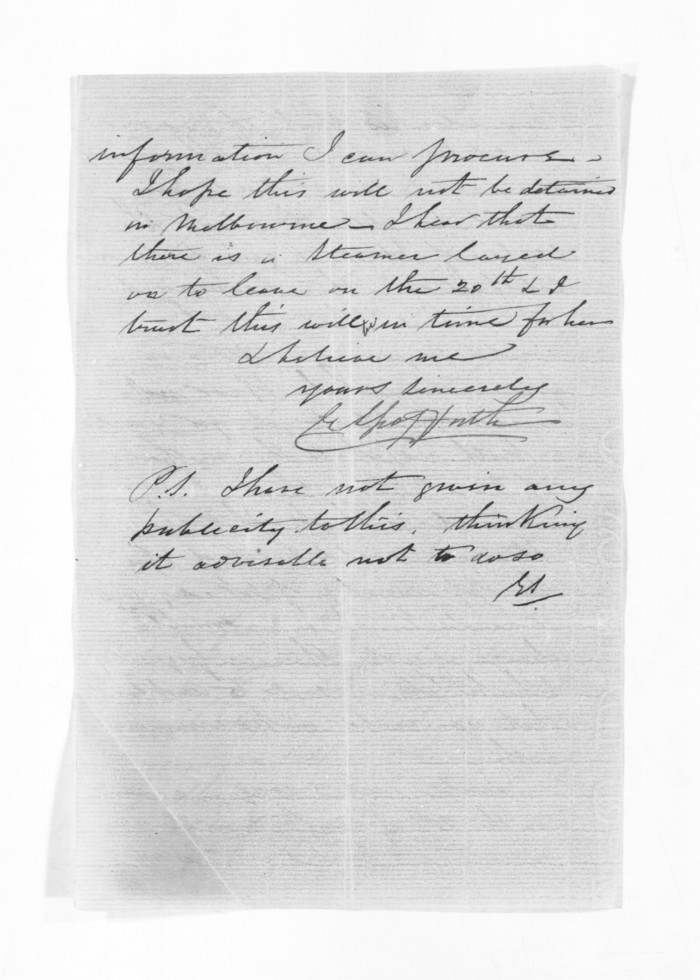 information I can procure -
I hope this will not be detained
in Melbourne - I hear that
there is a Steamer layed
on to leave on the 20th & I
trust this will be in time for her
I believe me
yours sincerely
E Spofforth
P.S. I have not given any
publicity to this, thinking
it advisable not to do so
ES.